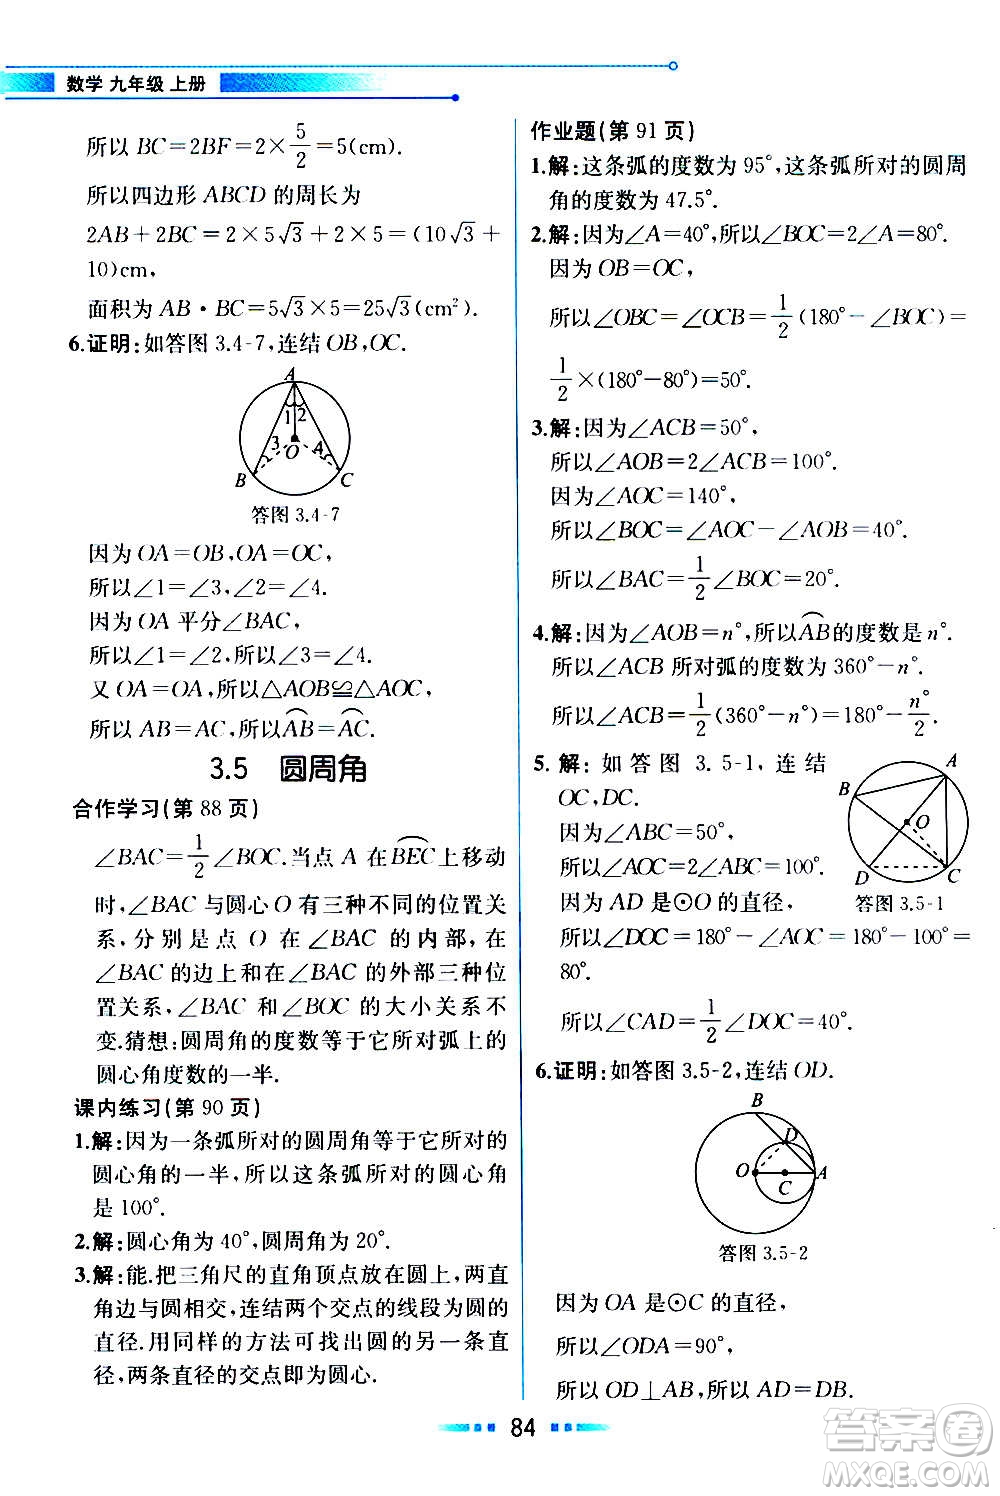 数学 九年级 上册
所以 BC=2BF=2×5/2=5(cm).
所以四边形 ABCD 的周长为
2AB+2BC=2×5√3+2×5=(10√3+
10)cm,
面积为 AB·BC=5√3×5=25√3(cm²).
6.证明:如答图 3.4-7,连结 OB,OC.
A
1 2
3 4
O
B C
答图 3.4-7
因为 OA=OB,OA=OC,
所以∠1=∠3,∠2=∠4.
因为 OA 平分∠BAC,
所以∠1=∠2,所以∠3=∠4.
又 OA=OA,所以△AOB≌△AOC,
所以 AB=AC,所以⌒AB=⌒AC.
3.5 圆周角
合作学习(第 88 页)
∠BAC=1/2∠BOC.当点 A 在⌒BEC上移动
时,∠BAC 与圆心 O 有三种不同的位置关
系,分别是点 O 在∠BAC 的内部,在
∠BAC 的边上和在∠BAC 的外部三种位
置关系,∠BAC 和∠BOC 的大小关系不
变.猜想:圆周角的度数等于它所对弧上的
圆心角度数的一半.
课内练习(第 90 页)
1.解:因为一条弧所对的圆周角等于它所对的
圆心角的一半,所以这条弧所对的圆心角
是 100°.
2.解:圆心角为 40°,圆周角为 20°.
3.解:能.把三角尺的直角顶点放在圆上,两直
角边与圆相交,连结两个交点的线段为圆的
直径.用同样的方法可找出圆的另一条直
径,两条直径的交点即为圆心.
作业题(第 91 页)
1.解:这条弧的度数为 95°,这条弧所对的圆周
角的度数为 47.5°.
2.解:因为∠A=40°,所以∠BOC=2∠A=80°.
因为 OB=OC,
所以∠OBC=∠OCB=1/2(180°-∠BOC)=
1/2×(180°-80°)=50°.
3.解:因为∠ACB=50°,
所以∠AOB=2∠ACB=100°.
因为∠AOC=140°,
所以∠BOC=∠AOC-∠AOB=40°.
所以∠BAC=1/2∠BOC=20°.
4.解:因为∠AOB=n°,所以⌒AB的度数是 n°.
所以∠ACB 所对弧的度数为 360°-n°.
所以∠ACB=1/2(360°-n°)=180°-n°/2.
5.解:如答图 3.5-1,连结
OC,DC.
因为∠ABC=50°,
所以∠AOC=2∠ABC=100°.
因为 AD 是⊙O 的直径,
所以∠DOC=180°-∠AOC=180°-100°=
80°.
所以∠CAD=1/2∠DOC=40°.
A
B
O
D C
答图 3.5-1
6.证明:如答图 3.5-2,连结 OD.
B
D
O C A
答图 3.5-2
因为 OA 是⊙C 的直径,
所以∠ODA=90°,
所以 OD⊥AB,所以 AD=DB.
84
答案圈
MXQE.COM